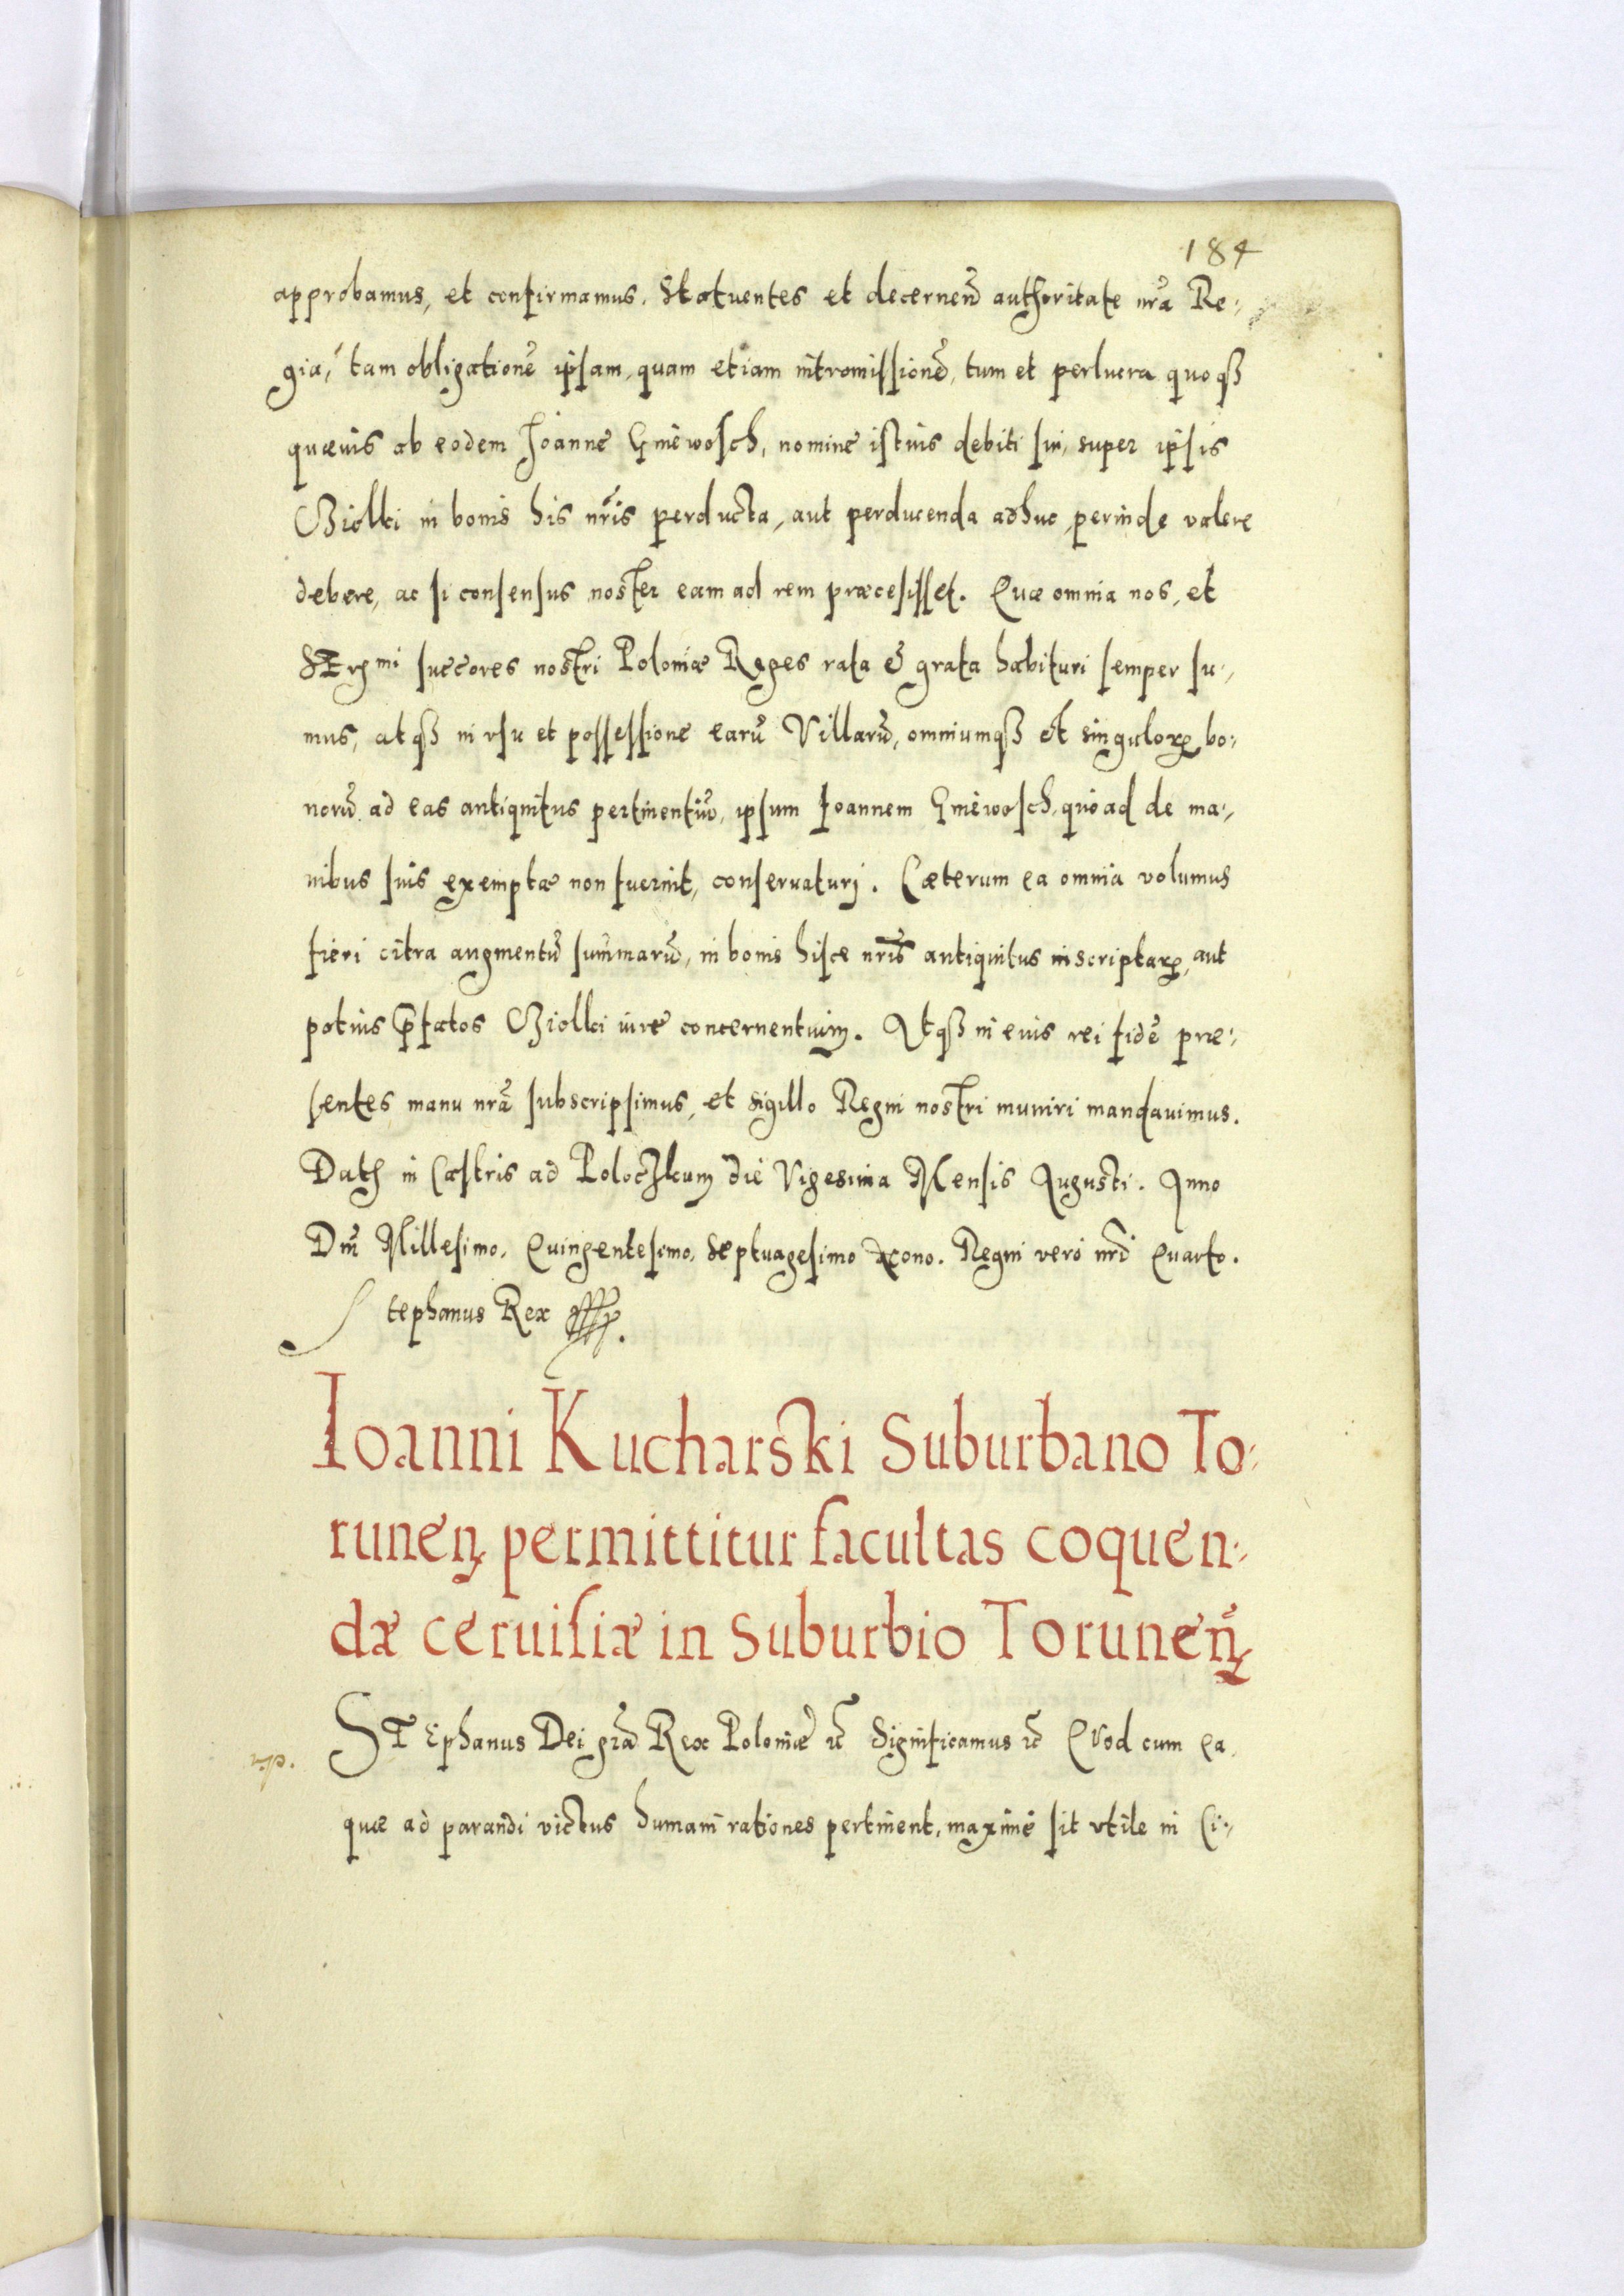 184
approbamus, et confirmamus. Statuentes et decernen̄ authoritate nrã Re-
gia, tam obligationẽ ipsam, quam etiam intromissionẽ, tum et perlucra quoqȝ
quævis ab eodem Joanne Gniewosch, nomine istius debiti sui, super ipsis
Biolki in bonis his nr̃is perducta, aut perducenda adhuc, perinde valere
debere, ac si consensus noster eam ad rem præcesisset. Quæ omnia nos, et
SErmi succores nostri Poloniæ Reges rata & grata habituri semper su-
mus, atqȝ in vsu et possessione earũ Villarũ, omniumqȝ et singuloꝝ bo-
norũ ad eas antiquitus pertinentiũ, ipsum Joannem Gniewosch, quoad de ma-
nibus suis exemptæ non fuerint, conservaturj. Cæterum ea omnia volumus
fieri citra augmentũ summarũ, in bonis hisce nr̃is antiquitus inscriptaꝝ, aut
potius p̃fatos Biolki iure concernentium. Atqȝ in euis rei fidẽ præ-
sentes manu nrã subscripsimus, et sigillo Regni nostri muniri mandauimus.
Datȝ in Castris ad Poloczkum die Vigesima Mensis Augusti. Anno
Dni̅ Millesimo, Quingentesimo, Septuagesimo Nono. Regni vero nr̃i Quarto.
Stephanus Rex
Ioanni Kucharski Suburbano To-
runen̄ permittitur facultas coquen-
dæ ceruisiæ in Suburbio Torunen̄
STEphanus Dei grã Rex Poloniæ ꝛc̃ Significamus ꝛc̃ Quod cum ea
quæ ad parandi victus humani rationes pertinent, maxime sit vtile in Ci-